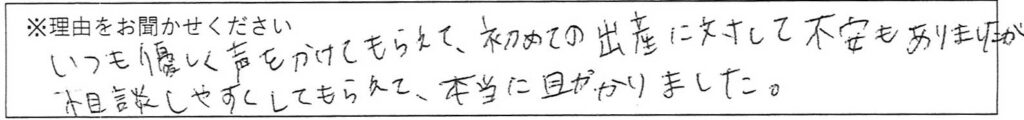 ※理由をお聞かせください
いつも優しく声をかけてもらえて、初めての出産に対して不安もありましたが
相談しやすくしてもらえて、本当に助かりました。